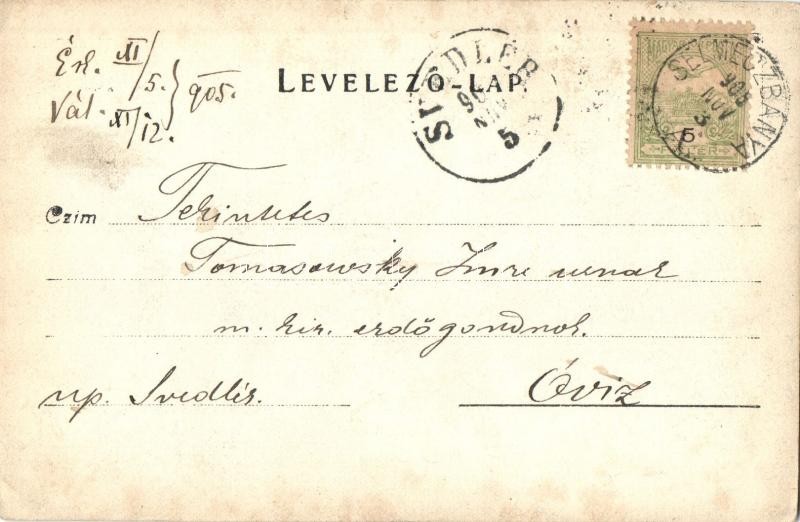 Érk. XI/5. } 905.
Vál. XI/12.
LEVELEZŐ-LAP.
SVEDLÉR
905 NOV 5
SELMECZBÁNYA
905 NOV 3
MAGYAR
5
FILLÉR
Czím Tekintetes
Tomasowsky Imre urnak
m. kir. erdőgondnok.
up. Svedlér. Óviz